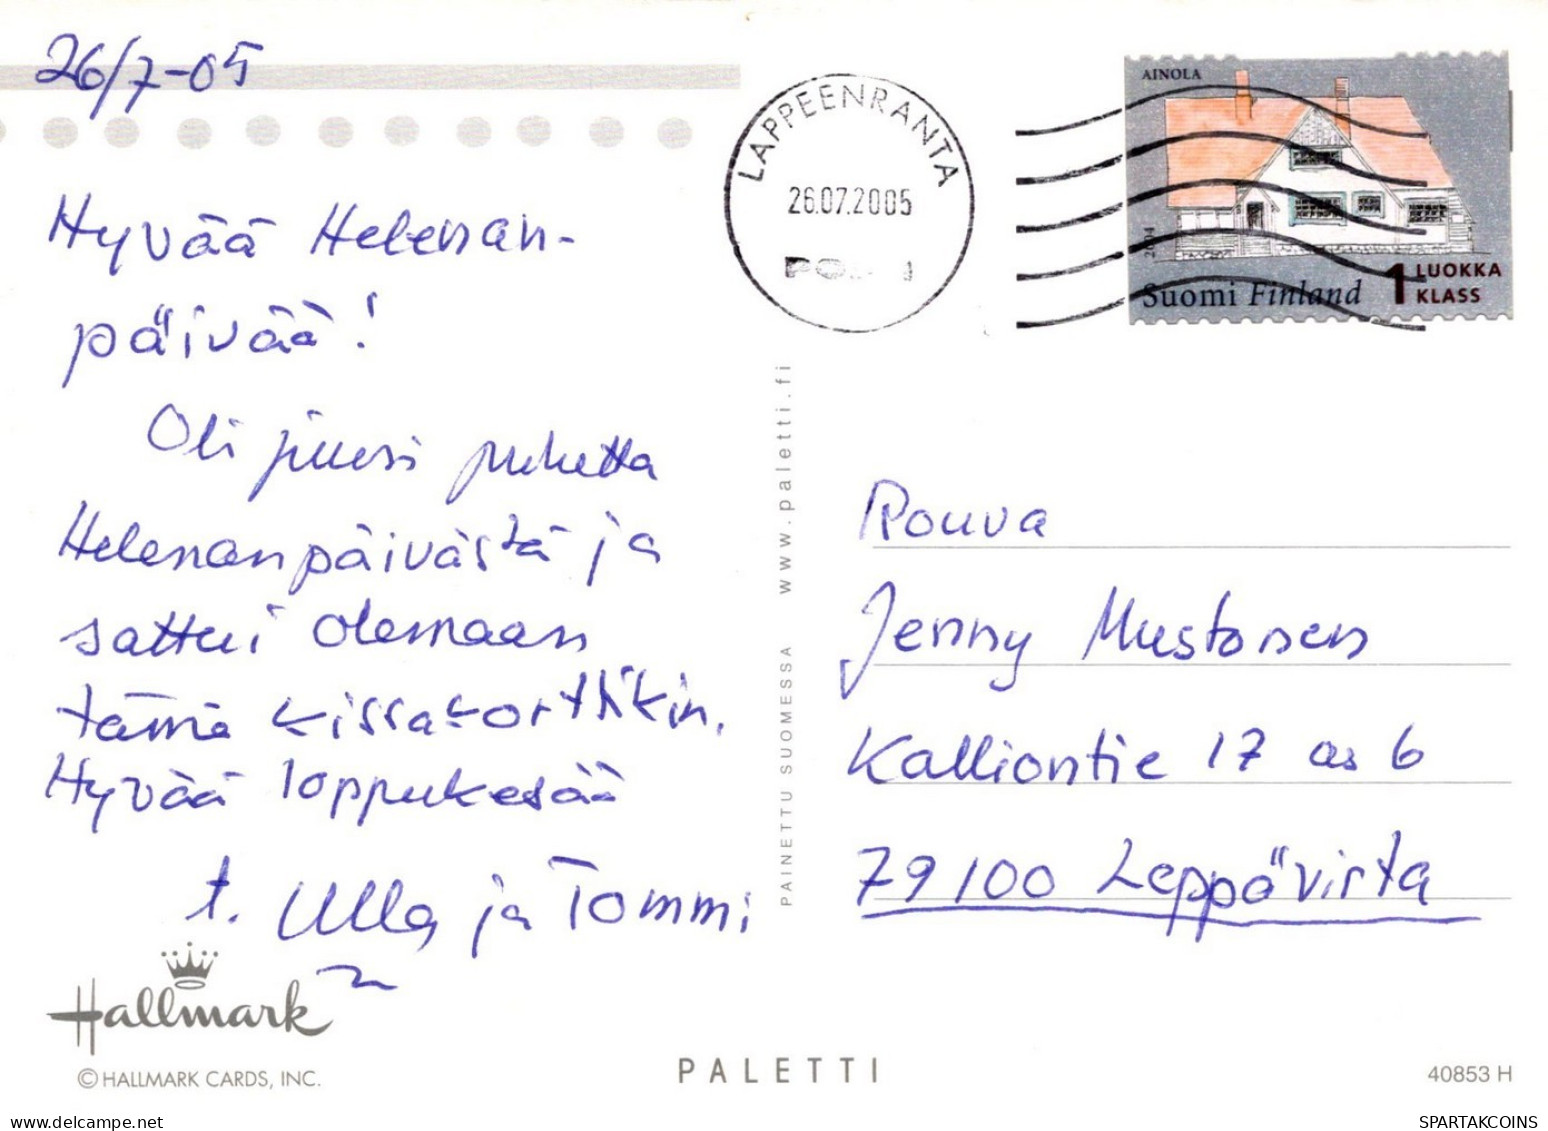 26/7-05
Hyvää Helenan-
päivää!
Oli juuri puhetta
Helenanpäivästä ja
sattui olemaan
tämä kissakorttikin.
Hyvää loppukesää
t. Ulla ja Tommi
Hallmark
© HALLMARK CARDS, INC.
PALETTI
PAINETTU SUOMESSA www.paletti.fi
LAPPEENRANTA
26.07.2005
AINOLA
2004
Suomi Finland
1 LUOKKA
KLASS
Rouva
Jenny Mustonen
Kalliontie 17 as 6
79100 Leppävirta
40853 H
delcampe.net
SPARTAKCOINS